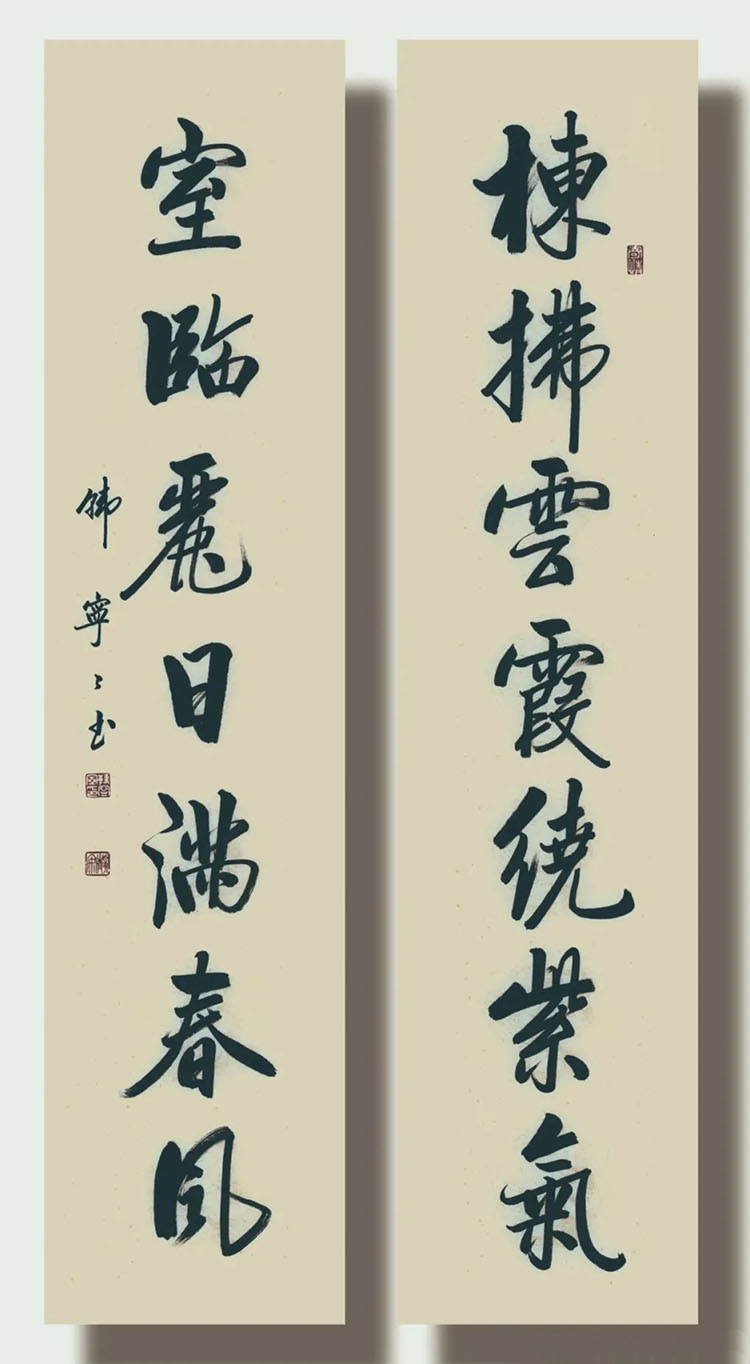 棟拂雲霞繞紫氣
室臨麗日滿春風
韩寧〻书